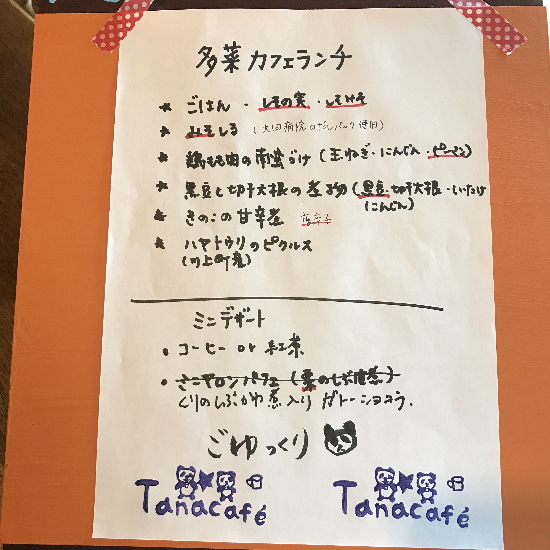 多菜カフェランチ
★ ごはん ・ しその実 ・ しそみそ
★ みそしる (太田病院のだしパック使用)
★ 鶏もも肉の南蛮づけ (玉ねぎ・にんじん・ピーマン)
★ 黒豆と切干大根の煮物 (黒豆・切干大根・しいたけ
にんじん)
★ きのこの甘辛煮
★ ハヤトウリのピクルス
(川上町産)
ミニデザート
• コーヒー or 紅茶
くりのしぶかわ煮入りガトーショコラ.
ごゆっくり
Tanacafé Tanacafé